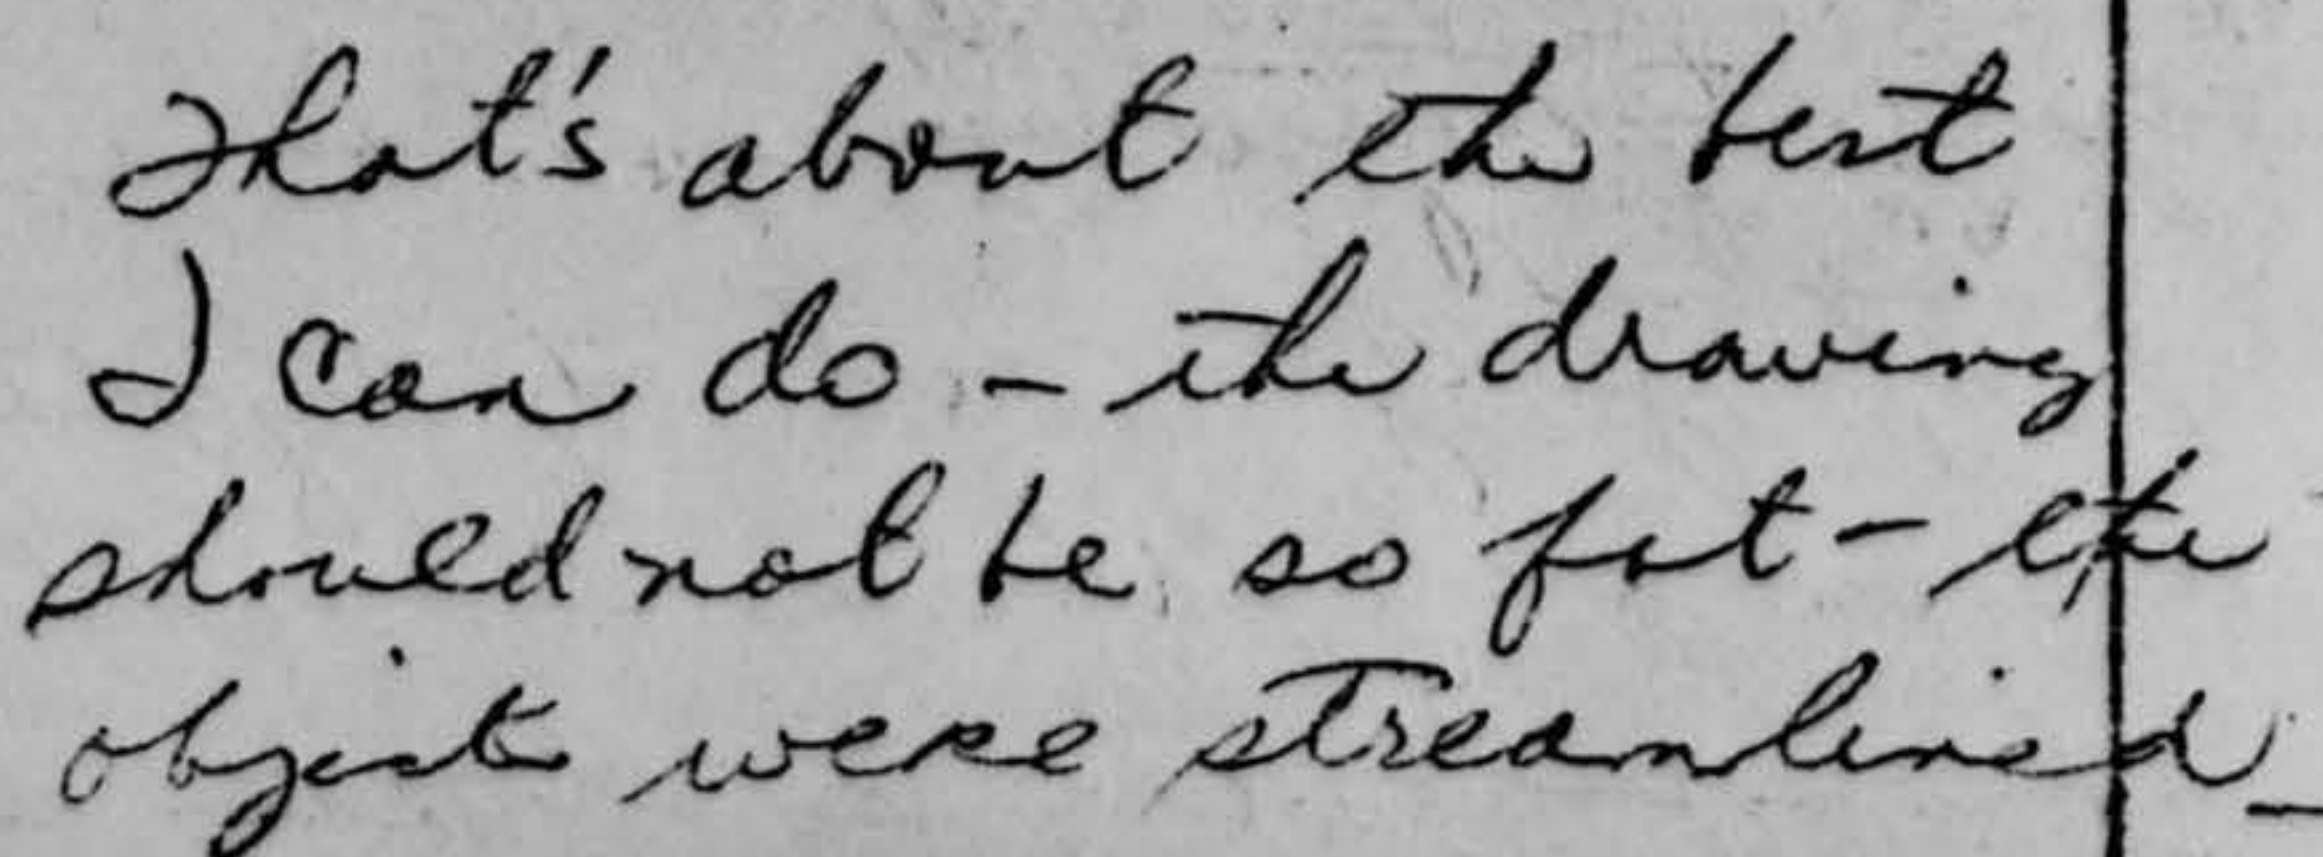 That's about the best
I can do - the drawing
should not be so fat - the
objects were streamlined -